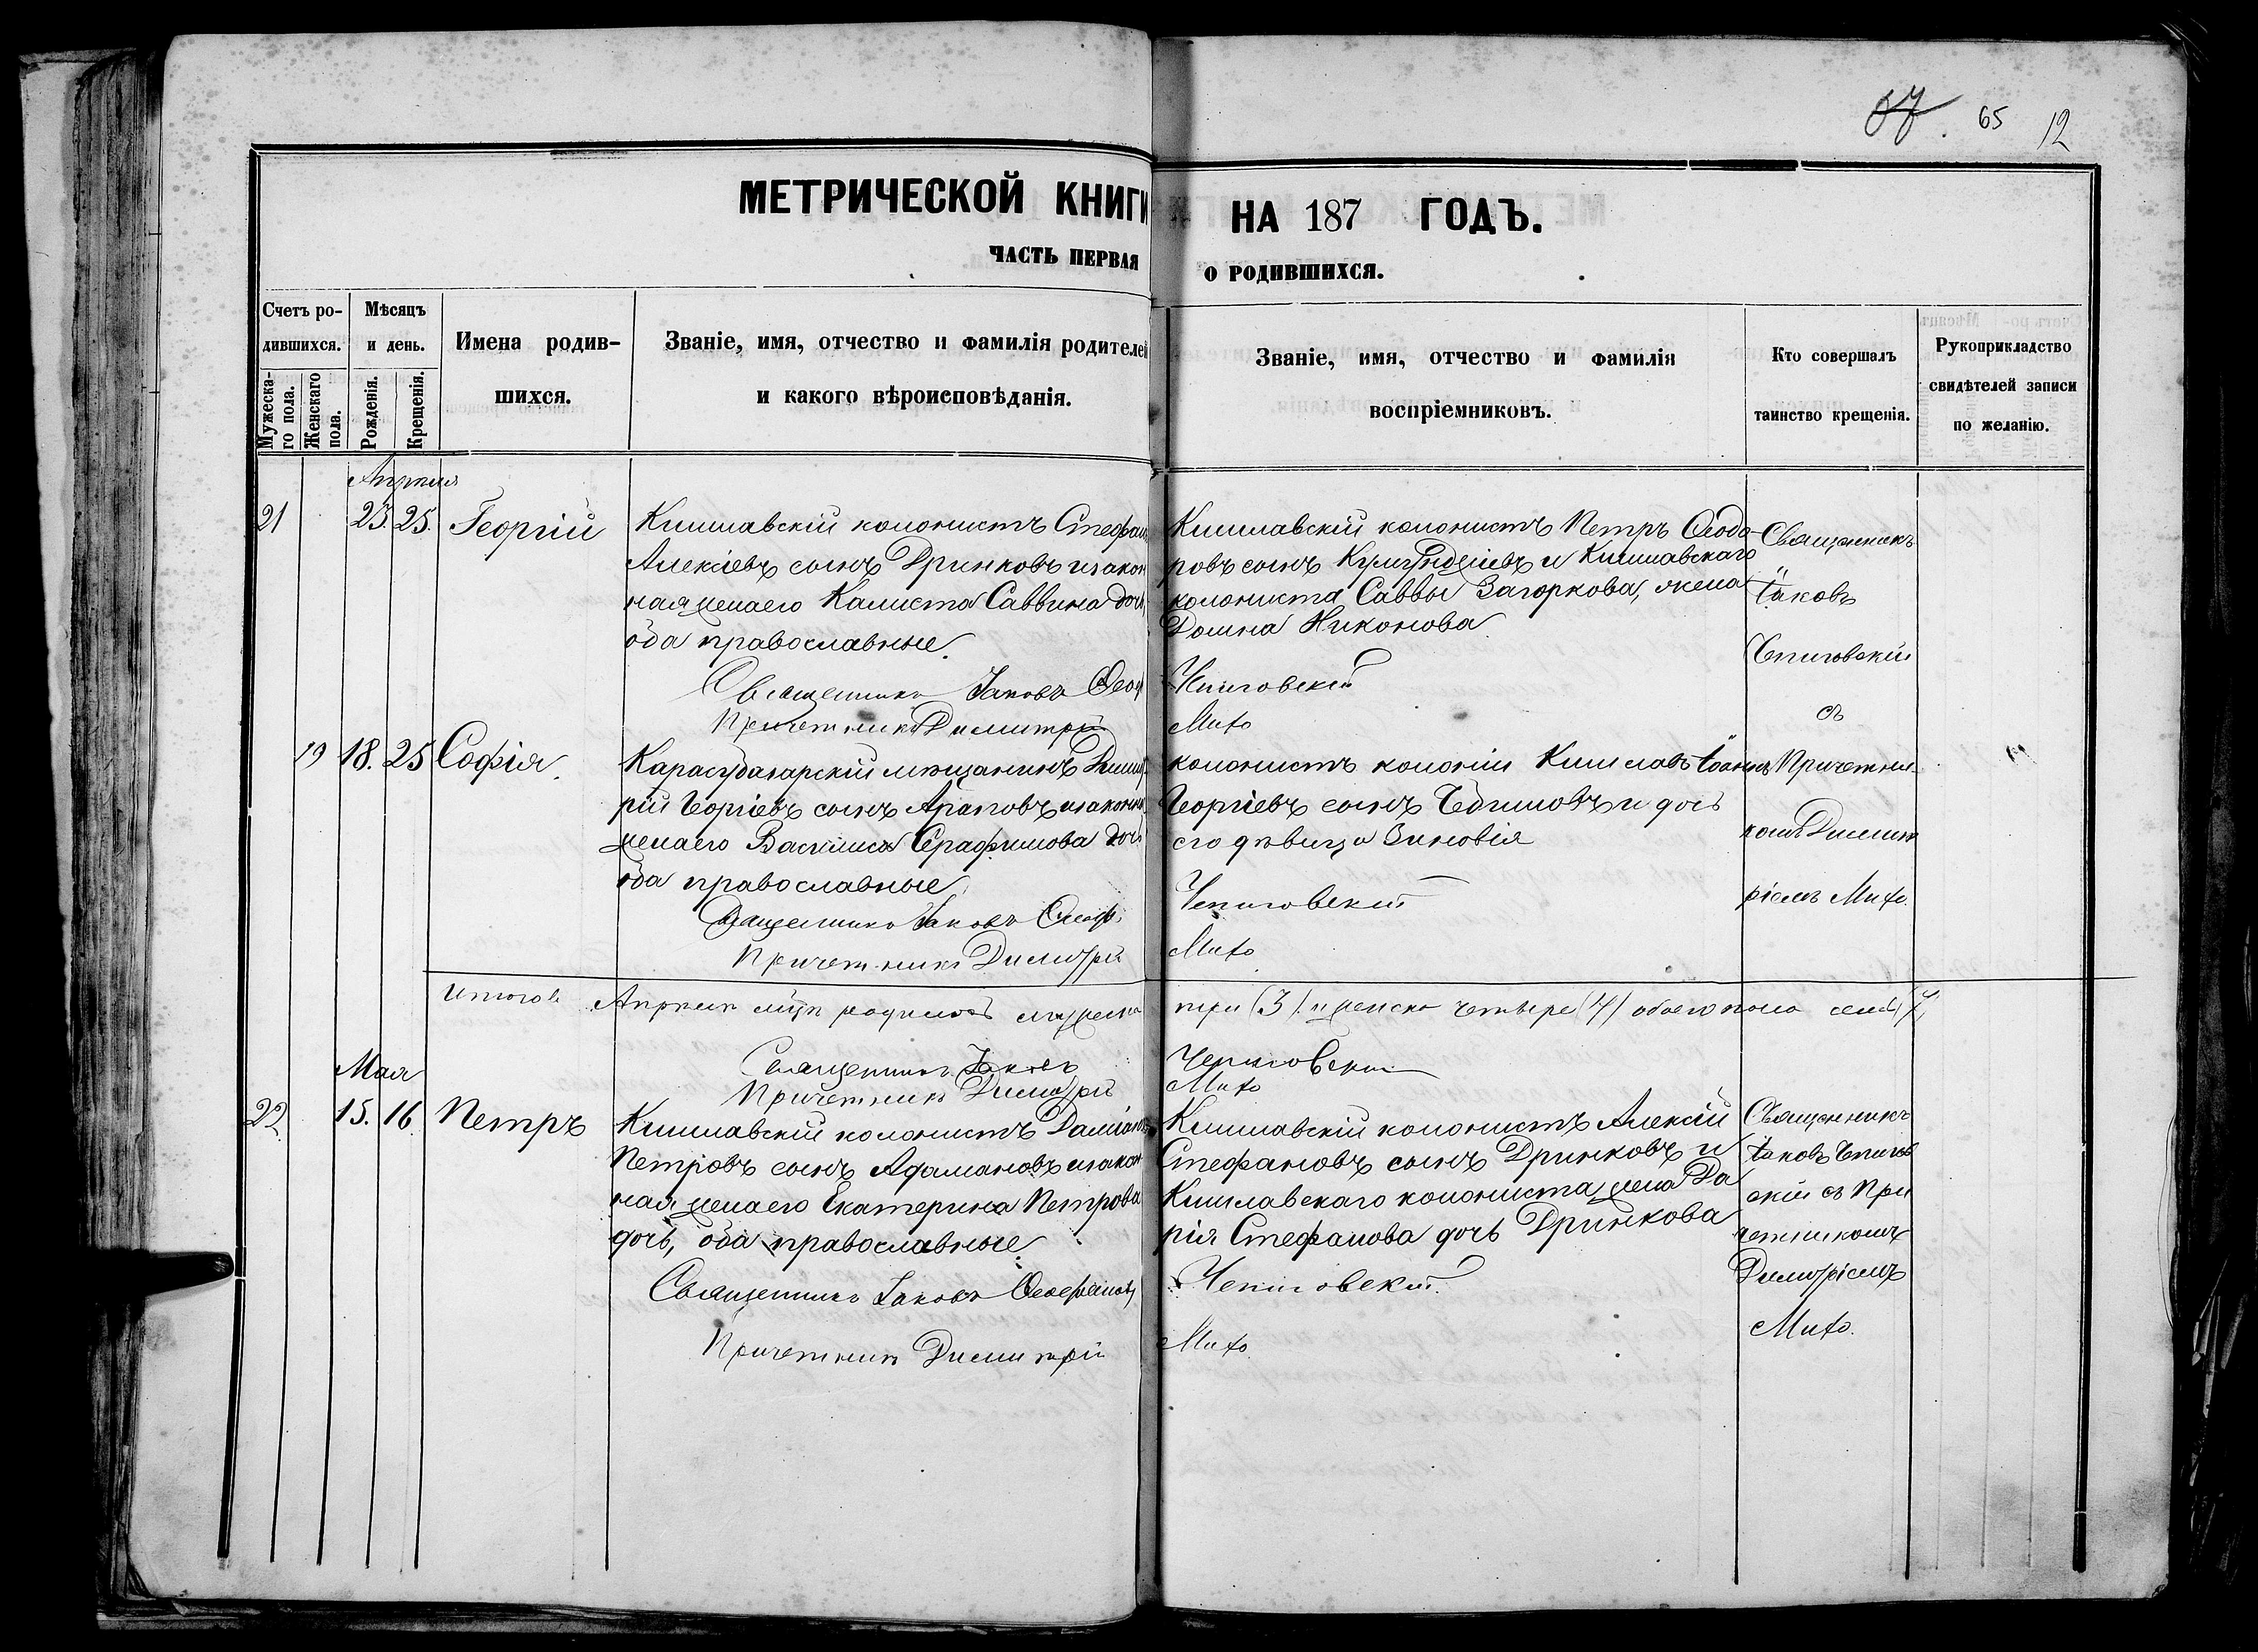 65 12
МЕТРИЧЕСКОЙ КНИГИ НА 187 ГОДЪ.
ЧАСТЬ ПЕРВАЯ О РОДИВШИХСЯ.
Счетъ ро-
дившихся.
Мужеска-
го пола.
Женскаго
пола.
Мѣсяцъ
и день.
Рожденія.
Крещенія.
Имена родив-
шихся.
Званіе, имя, отчество и фамилія родителей
и какого вѣроисповѣданія.
Званіе, имя, отчество и фамилія
воспріемниковъ.
Кто совершалъ
таинство крещенія.
Рукоприкладство
свидѣтелей записи
по желанію.
Апрѣля
21 23. 25. Георгій
Кишлавскій колонистъ Стефанъ
Алексіевъ сынъ Дринковъ изакон
ная жена его Калиста Саввина дочь
оба православные.
Священникъ Іаковъ
Причетникъ Димитрій
Кишлавскій колонистъ Петръ Ѳеодо-
ровъ сынъ и Кишлавскаго
колониста Саввы Загоркова, жена
Домна Никонова
Чепиговскій
Мито
Священникъ
Іаковъ
Чепиговскій
съ
Причетни-
комъ Димит
ріемъ Мито.
19 18. 25 Софія.
Карасубазарскій мѣщанинъ Димит-
рій Георгіевъ сынъ Араповъ изаконн.
жена его Василиса Серафимова дочь
оба православные
Священникъ Іаковъ
Причетникъ Димитрій
колонистъ колоніи Кишлавъ Іоаннъ
Георгіевъ сынъ и дочь
его дѣвица Зиновія
Чепиговскій
Мито
Итого въ Апрѣлѣ мѣц родилось мужеска три (3) и женска четыре (4) обоего пола семь (7)
Священникъ Іаковъ Чепиговскій
Причетникъ Димитрій Мито
Мая
22 15. 16. Петръ
Кишлавскій колонистъ Даміанъ
Петровъ сынъ Адамановъ изакон
ная жена его Екатерина Петрова
дочь, оба православные.
Священникъ Іаковъ Ѳеофановъ
Причетникъ Димитрій
Кишлавскій колонистъ Алексій
Стефановъ сынъ Дринковъ и
Кишлавскаго колониста жена Да
рія Стефанова дочь Дринкова
Чепиговскій.
Мито
Священникъ
Іаковъ Чепигов
скій съ При
четникомъ
Димитріемъ
Мито.